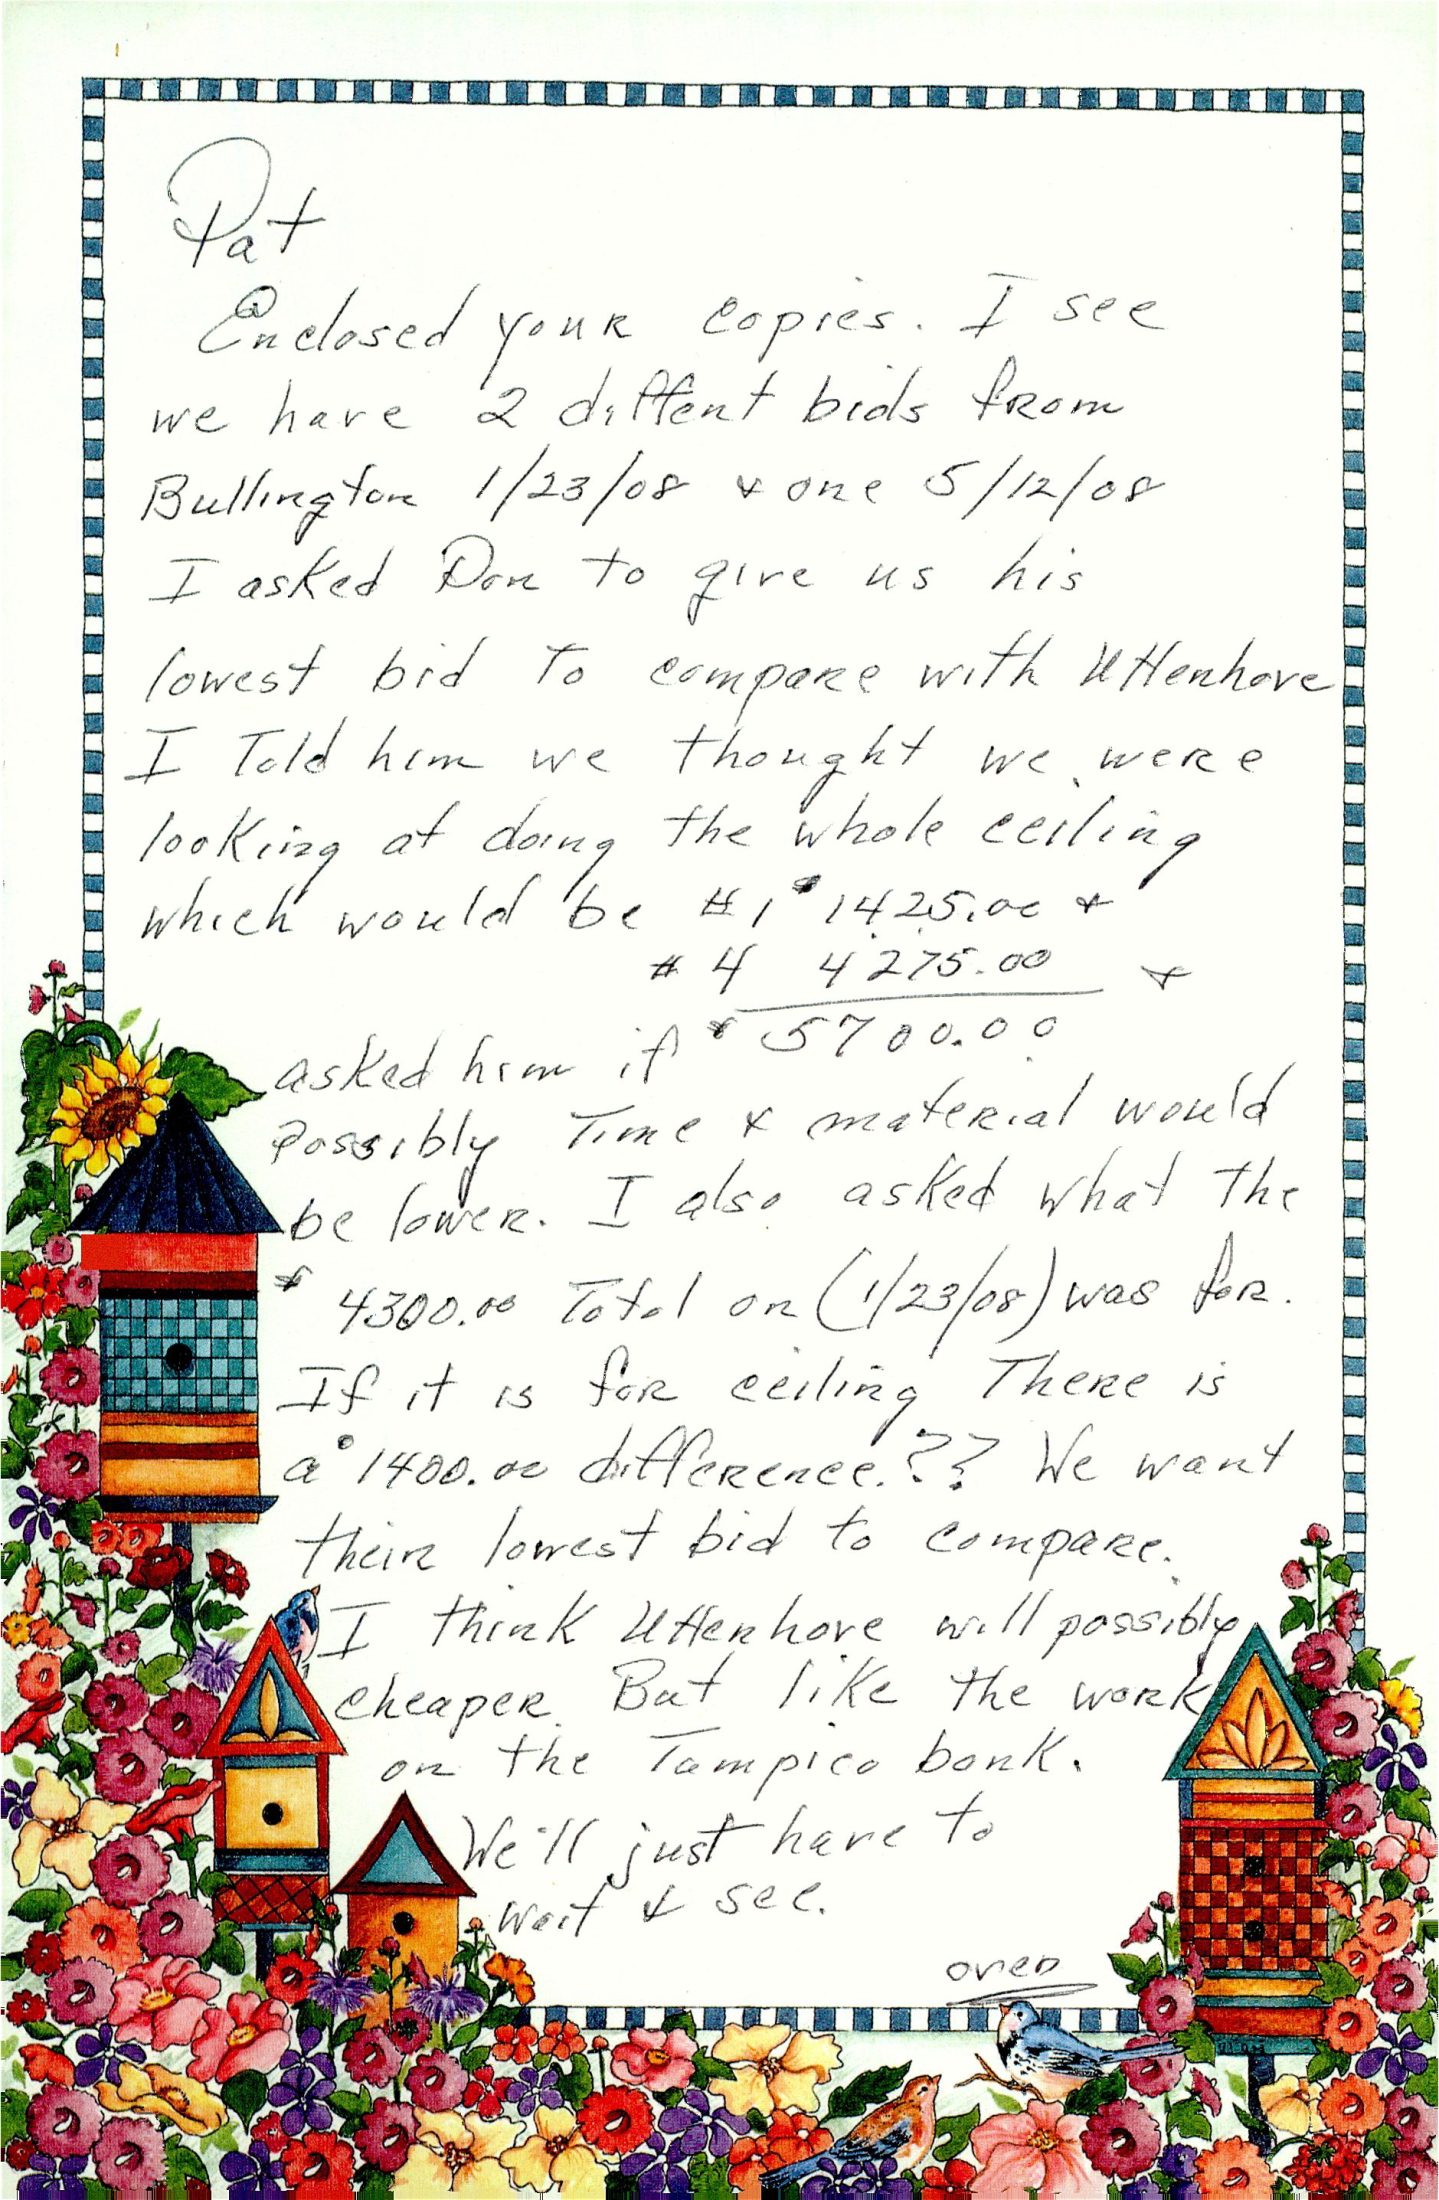 Pat
Enclosed your copies. I see
we have 2 diffent bids from
Bullington 1/23/08 & one 5/12/08
I asked Don to give us his
lowest bid to compare with Uttenhove
I Told him we thought we were
looking at doing the whole ceiling
which would be #1 $1425.00 &
#4 4275.00 &
$5700.00
asked him if
possibly Time & material would
be lower. I also asked what the
$4300.00 Total on (1/23/08) was for.
If it is for ceiling There is
a $1400.00 difference.?? We want
their lowest bid to compare.
I think Uttenhove will possibly
cheaper. But like the work
on the Tampico bank.
We'll just have to
wait & see.
over